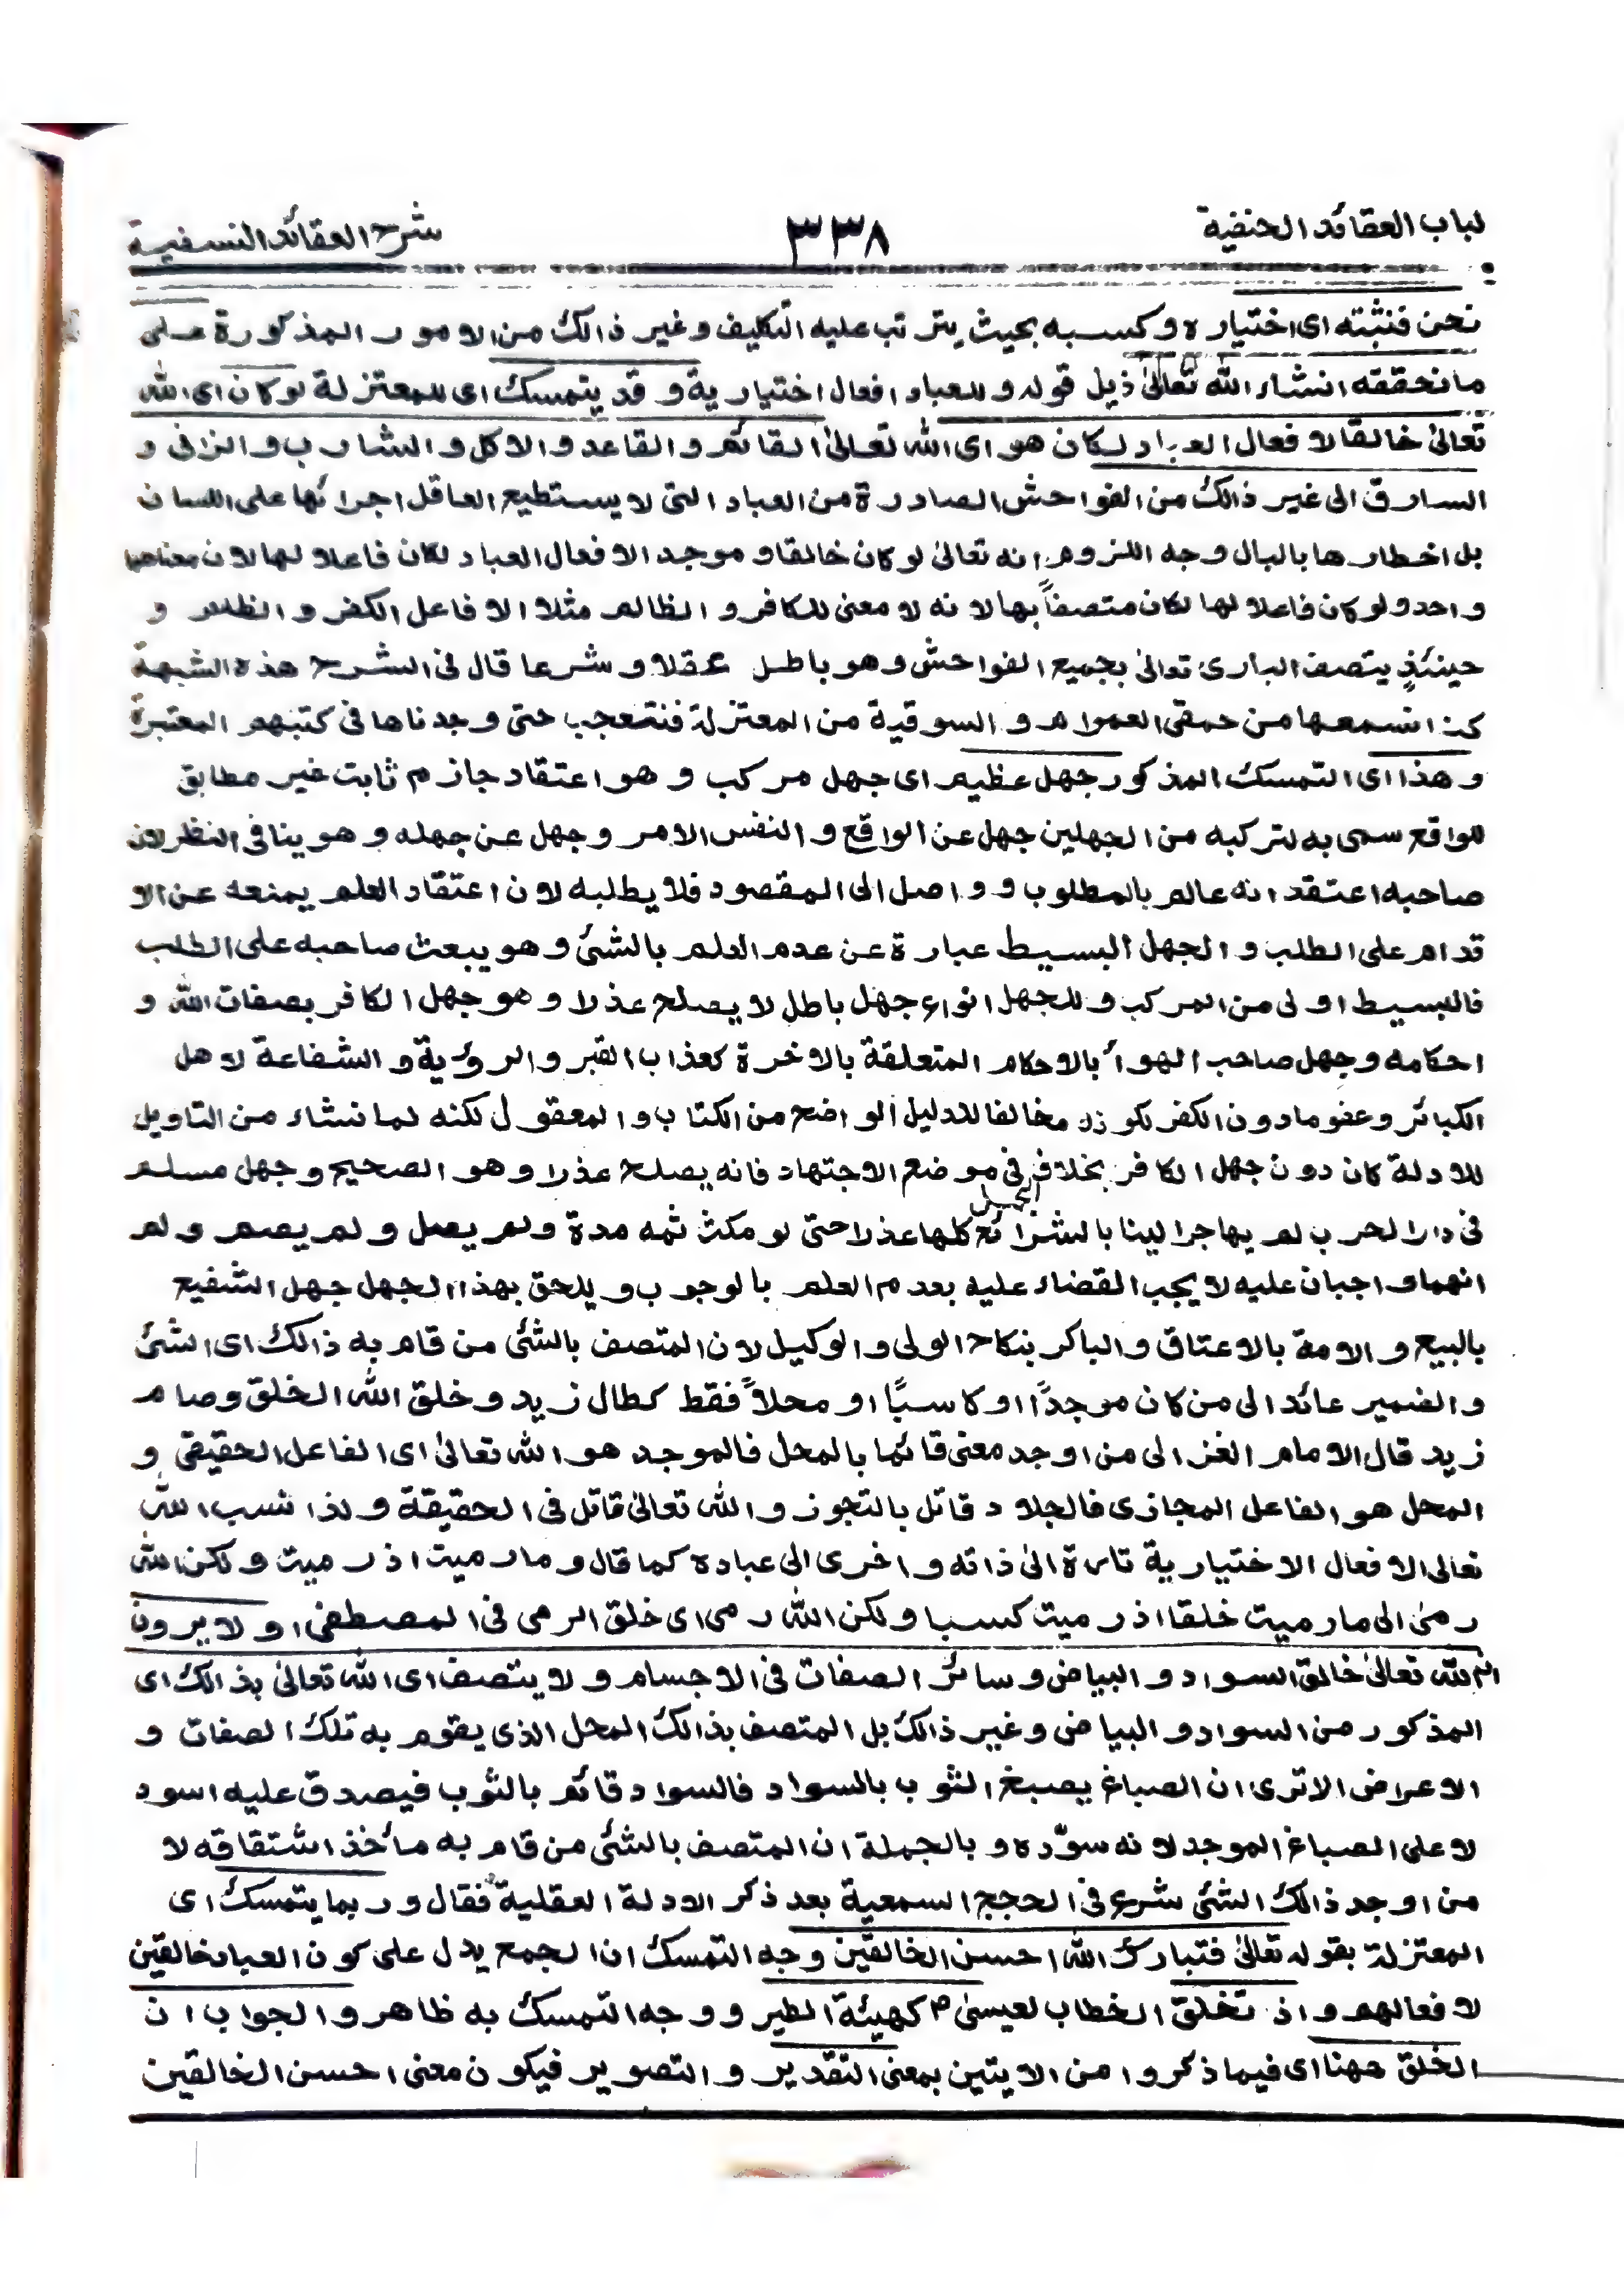 لباب العقائد الحنفية ٣٣٨ شرح العقائد النسفية
نحن فنثبته اى اختياره وكسبه بحيث يترتب عليه التكليف وغير ذالك من الامور المذكورة على
ما نحققه انشاء الله تعالىٰ ذيل قوله وللعباد افعال اختيارية وقد يتمسك اى للمعتزلة لو كان اى الله
تعالىٰ خالقا لافعال العباد لكان هو اى الله تعالىٰ القائم والقاعد والاكل والشارب والزانى و
السارق الى غير ذالك من الفواحش الصادرة من العباد التى لا يستطيع العاقل اجرائها على اللسان
بل اخطارها بالبال وجه اللزوم انه تعالىٰ لو كان خالقا وموجد الافعال العباد لكان فاعلا لها لان معناهما
واحد ولو كان فاعلا لها لكان متصفاً بها لانه لا معنى للكافر والظالم مثلا الا فاعل الكفر والظلم و
حينئذٍ يتصف البارى تعالىٰ بجميع الفواحش وهو باطل عقلا وشرعا قال فى الشرح هذه الشبهة
كنا نسمعها من حمقى العوام والسوقية من المعتزلة فنتعجب حتى وجدناها فى كتبهم المعتبرة
وهذا اى التمسك المذكور جهل عظيم اى جهل مركب وهو اعتقاد جازم ثابت غير مطابق
للواقع سمى به لتركبه من الجهلين جهل عن الواقع والنفس الامر وجهل عن جهله وهو ينافى النظر لان
صاحبه اعتقد انه عالم بالمطلوب وواصل الى المقصود فلا يطلبه لان اعتقاد العلم يمنعه عن الا
قدام على الطلب والجهل البسيط عبارة عن عدم العلم بالشئ وهو يبعث صاحبه على الطلب
فالبسيط اولى من المركب وللجهل انواع جهل باطل لا يصلح عذرا وهو جهل الكافر بصفات الله و
احكامه وجهل صاحب الهوأ بالاحكام المتعلقة بالاخرة كعذاب القبر والرؤية والشفاعة لاهل
الكبائر وعفو مادون الكفر لكونه مخالفا للدليل الواضح من الكتاب والمعقول لكنه لما نشاء من التاويل
للادلة كان دون جهل الكافر بخلاف فى موضع الاجتهاد فانه يصلح عذرا وهو الصحيح وجهل مسلم
فى دار الحرب لم يهاجر الينا بالشرائع كلها عذرا حتى لو مكث ثمه مدة ولم يصل ولم يصم ولم
انهما واجبان عليه لا يجب القضاء عليه بعدم العلم بالوجوب ويلحق بهذا الجهل جهل الشفيع
بالبيع والامة بالاعتاق والباكر بنكاح الولى والوكيل لان المتصف بالشئ من قام به ذالك اى الشئ
والضمير عائد الى من كان موجداً او كاسبًا او محلاً فقط كطال زيد وخلق الله الخلق وصام
زيد قال الامام الغزالى من اوجد معنى قائما بالمحل فالموجد هو الله تعالىٰ اى الفاعل الحقيقى و
المحل هو الفاعل المجازى فالجلاد قاتل بالتجوز والله تعالىٰ قاتل فى الحقيقة ولذا نسب الله
تعالى الافعال الاختيارية تارة الىٰ ذاته واخرى الى عباده كما قال وما رميت اذ رميت ولكن الله
رمىٰ الى ما رميت خلقا اذ رميت كسبا ولكن الله رمى اى خلق الرمى فى المصطفى اولا يرون
ان الله تعالىٰ خالق السواد والبياض وسائر الصفات فى الاجسام ولا يتصف اى الله تعالىٰ بذالك اى
المذكور من السواد والبياض وغير ذالك بل المتصف بذالك المحل الذى يقوم به تلك الصفات و
الاعراض الا ترى ان الصباغ يصبغ الثوب بالسواد فالسواد قائم بالثوب فيصدق عليه اسود
لا على الصباغ الموجد لانه سوّده وبالجملة ان المتصف بالشئ من قام به مأخذ اشتقاقه لا
من اوجد ذالك الشئ شرع فى الحجج السمعية بعد ذكر الادلة العقلية فقال وربما يتمسك اى
المعتزلة بقوله تعالىٰ فتبارك الله احسن الخالقين وجه التمسك ان الجمع يدل على كون العباد خالقين
لافعالهم واذ تخلق الخطاب لعيسىٰ كهيئة الطير ووجه التمسك به ظاهر والجواب ان
الخلق ههنا اى فيما ذكروا من الايتين بمعنى التقدير والتصوير فيكون معنى احسن الخالقين